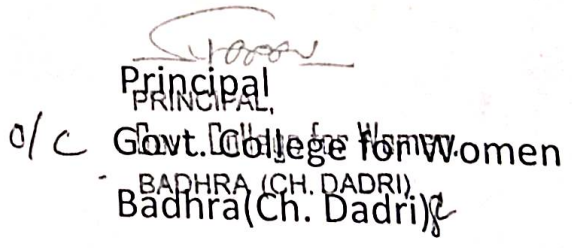 Principal
PRINCIPAL,
o/c Govt. College for Women
Govt. College for Women.
BADHRA (CH. DADRI)
Badhra(Ch. Dadri)